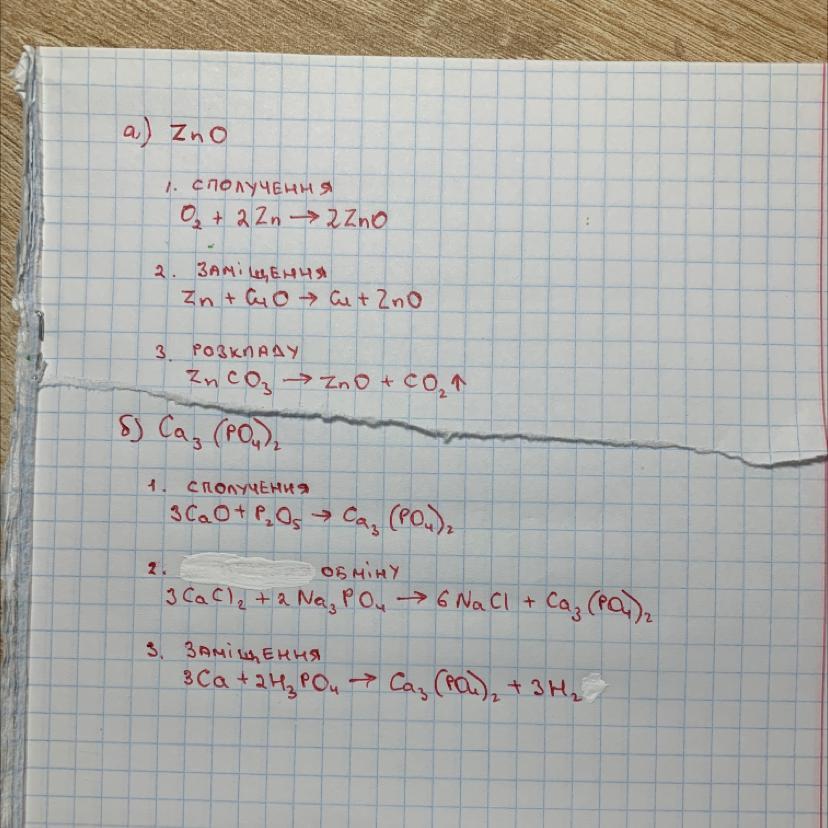 а) ZnO
1. СПОЛУЧЕННЯ
O₂ + 2Zn → 2ZnO
2. ЗАМІЩЕННЯ
Zn + CuO → Cu + ZnO
3. РОЗКЛАДУ
ZnCO₃ → ZnO + CO₂↑
б) Ca₃(PO₄)₂
1. СПОЛУЧЕННЯ
3CaO + P₂O₅ → Ca₃(PO₄)₂
2. ОБМІНУ
3CaCl₂ + 2Na₃PO₄ → 6NaCl + Ca₃(PO₄)₂
3. ЗАМІЩЕННЯ
3Ca + 2H₃PO₄ → Ca₃(PO₄)₂ + 3H₂